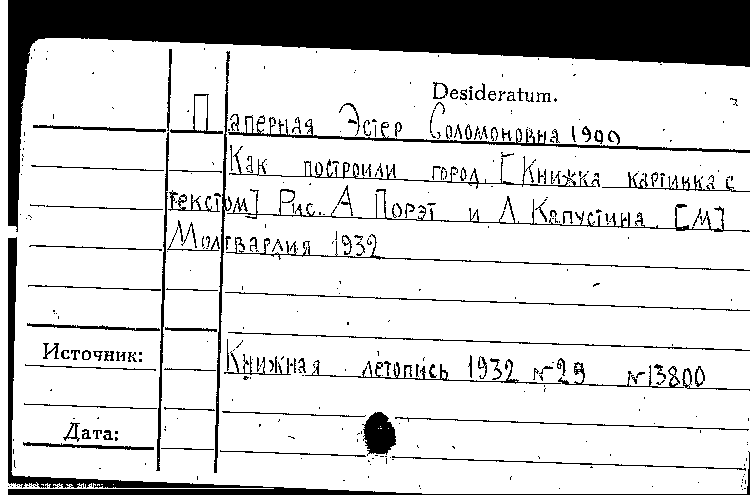 Desideratum.
Паперная Эстер Соломоновна 1900
Как построили город. [Книжка картинка с
текстом] Рис. А Порэт и Л Капустина [М]
Молгвардия 1932
Источник:
Книжная летопись 1932 №29 №13800
Дата: